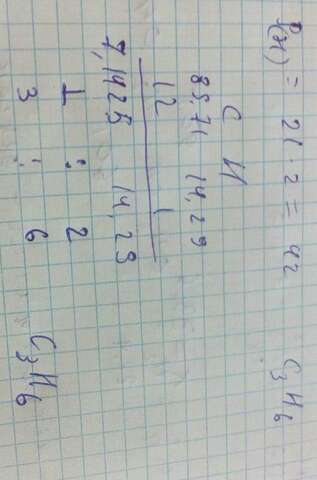 (H) = 21 · 2 = 42 C3H6
C H
85,71 14,29
12 1
7,1425 14,29
1 : 2
3 : 6 C3H6